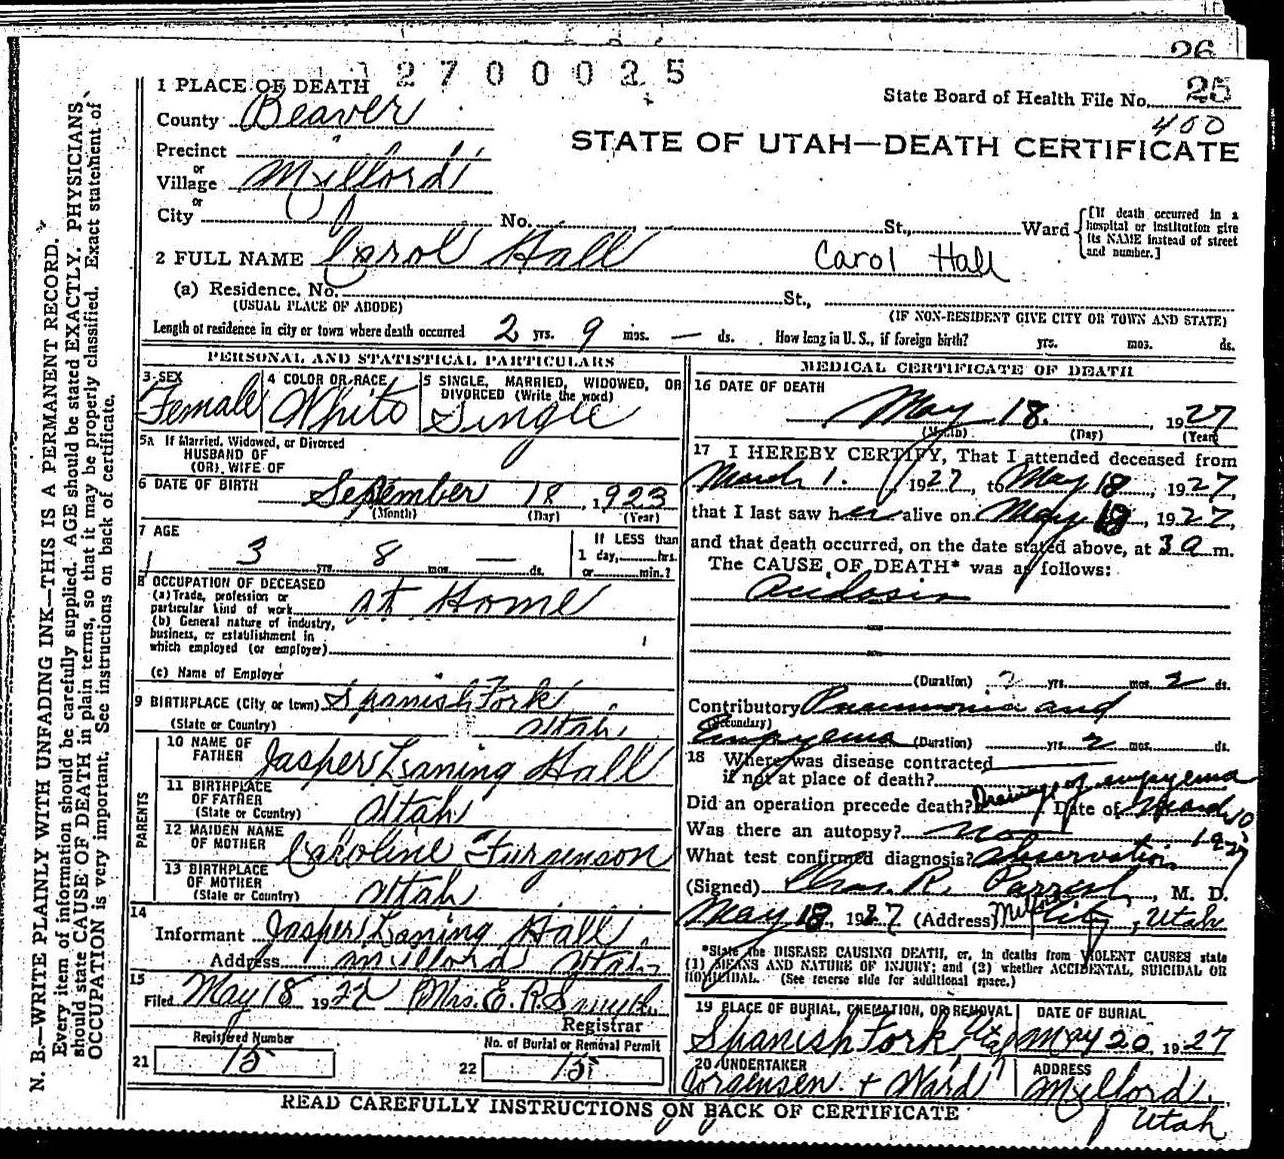 26
2700025
25
State Board of Health File No.
400
STATE OF UTAH—DEATH CERTIFICATE
1 PLACE OF DEATH
County Beaver
Precinct
or
Village Milford
or
City No. St., Ward
[If death occurred in a hospital or institution give its NAME instead of street and number.]
2 FULL NAME Carol Hall Carol Hall
(a) Residence. No. St.,
(USUAL PLACE OF ABODE) (IF NON-RESIDENT GIVE CITY OR TOWN AND STATE)
Length of residence in city or town where death occurred 2 yrs. 9 mos. — ds. How long in U. S., if foreign birth? yrs. mos. ds.
PERSONAL AND STATISTICAL PARTICULARS
3 SEX Female
4 COLOR OR RACE White
5 SINGLE, MARRIED, WIDOWED, OR DIVORCED (Write the word) Single
5a If Married, Widowed, or Divorced
HUSBAND OF
(OR) WIFE OF
6 DATE OF BIRTH September 18, 1923
(Month) (Day) (Year)
7 AGE 3 yrs. 8 mos. — ds.
If LESS than 1 day, hrs. or min.?
8 OCCUPATION OF DECEASED
(a) Trade, profession or particular kind of work At Home
(b) General nature of industry, business, or establishment in which employed (or employer)
(c) Name of Employer
9 BIRTHPLACE (City or town) Spanish Fork
(State or Country) Utah.
PARENTS
10 NAME OF FATHER Jasper Laning Hall
11 BIRTHPLACE OF FATHER (State or Country) Utah
12 MAIDEN NAME OF MOTHER Caroline Furgenson
13 BIRTHPLACE OF MOTHER (State or Country) Utah
14
Informant Jasper Laning Hall.
Address Milford Utah
15
Filed May 18 1927 Mrs. E. R. Smyth
Registrar
Registered Number
21 15
No. of Burial or Removal Permit
22 15
MEDICAL CERTIFICATE OF DEATH
16 DATE OF DEATH
May 18. 1927
(Month) (Day) (Year)
17 I HEREBY CERTIFY, That I attended deceased from
March 1. 1927, to May 18, 1927,
that I last saw her alive on May 18, 1927,
and that death occurred, on the date stated above, at 3 a m.
The CAUSE OF DEATH* was as follows:
Acidosis
(Duration) yrs. mos. 2 ds.
Contributory Pneumonia and
(Secondary)
Empyema (Duration) yrs. 2 mos. ds.
18 Where was disease contracted
if not at place of death?
Did an operation precede death? Drainage of empyema Date of March 10
1927
Was there an autopsy? no
What test confirmed diagnosis? Observation
(Signed) Chas. R. Parrish, M. D.
May 18, 1927 (Address) Milford City, Utah
*State the DISEASE CAUSING DEATH, or, in deaths from VIOLENT CAUSES state
(1) MEANS AND NATURE OF INJURY; and (2) whether ACCIDENTAL, SUICIDAL OR
HOMICIDAL. (See reverse side for additional space.)
19 PLACE OF BURIAL, CREMATION, OR REMOVAL
Spanish Fork, Utah
DATE OF BURIAL
May 20 1927
20 UNDERTAKER
Jorgensen + Ward
ADDRESS
Milford.
Utah
READ CAREFULLY INSTRUCTIONS ON BACK OF CERTIFICATE
N. B.—WRITE PLAINLY WITH UNFADING INK—THIS IS A PERMANENT RECORD.
Every item of information should be carefully supplied. AGE should be stated EXACTLY. PHYSICIANS
should state CAUSE OF DEATH in plain terms, so that it may be properly classified. Exact statement of
OCCUPATION is very important. See instructions on back of certificate.